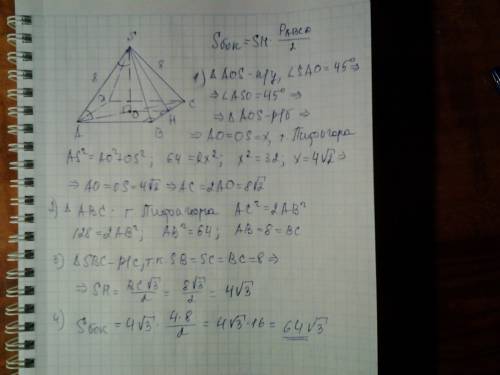 S
8
8
D
C
O
H
A
B
Sбок = SH · PABCD / 2
1) △AOS - п/у, ∠SAO = 45° ⇒
⇒ ∠ASO = 45° ⇒
⇒ △AOS - р/б ⇒
⇒ AO = OS = x, т. Пифагора
AS² = AO² + OS²; 64 = 2x²; x² = 32; x = 4√2 ⇒
⇒ AO = OS = 4√2 ⇒ AC = 2AO = 8√2
2) △ABC - т. Пифагора AC² = 2AB²
128 = 2AB²; AB² = 64; AB = 8 = BC
3) △SBC - р/с, т.к. SB = SC = BC = 8 ⇒
⇒ SH = BC√3 / 2 = 8√3 / 2 = 4√3
4) Sбок = 4√3 · 4·8 / 2 = 4√3 · 16 = 64√3